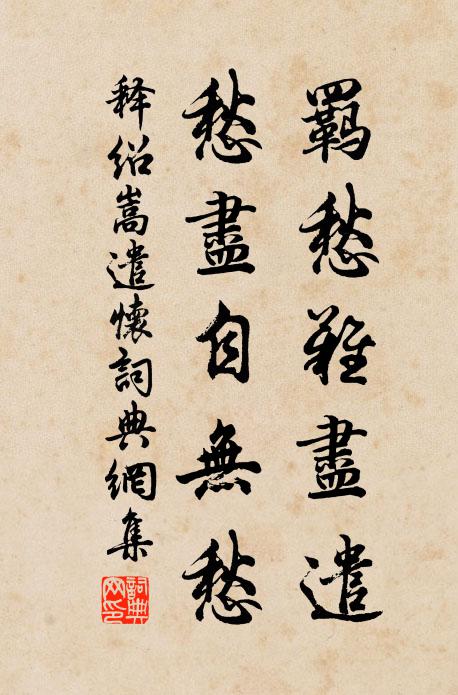 羈愁難盡遣
愁盡自無愁
释绍嵩遣懷詞典網集
詞典网印